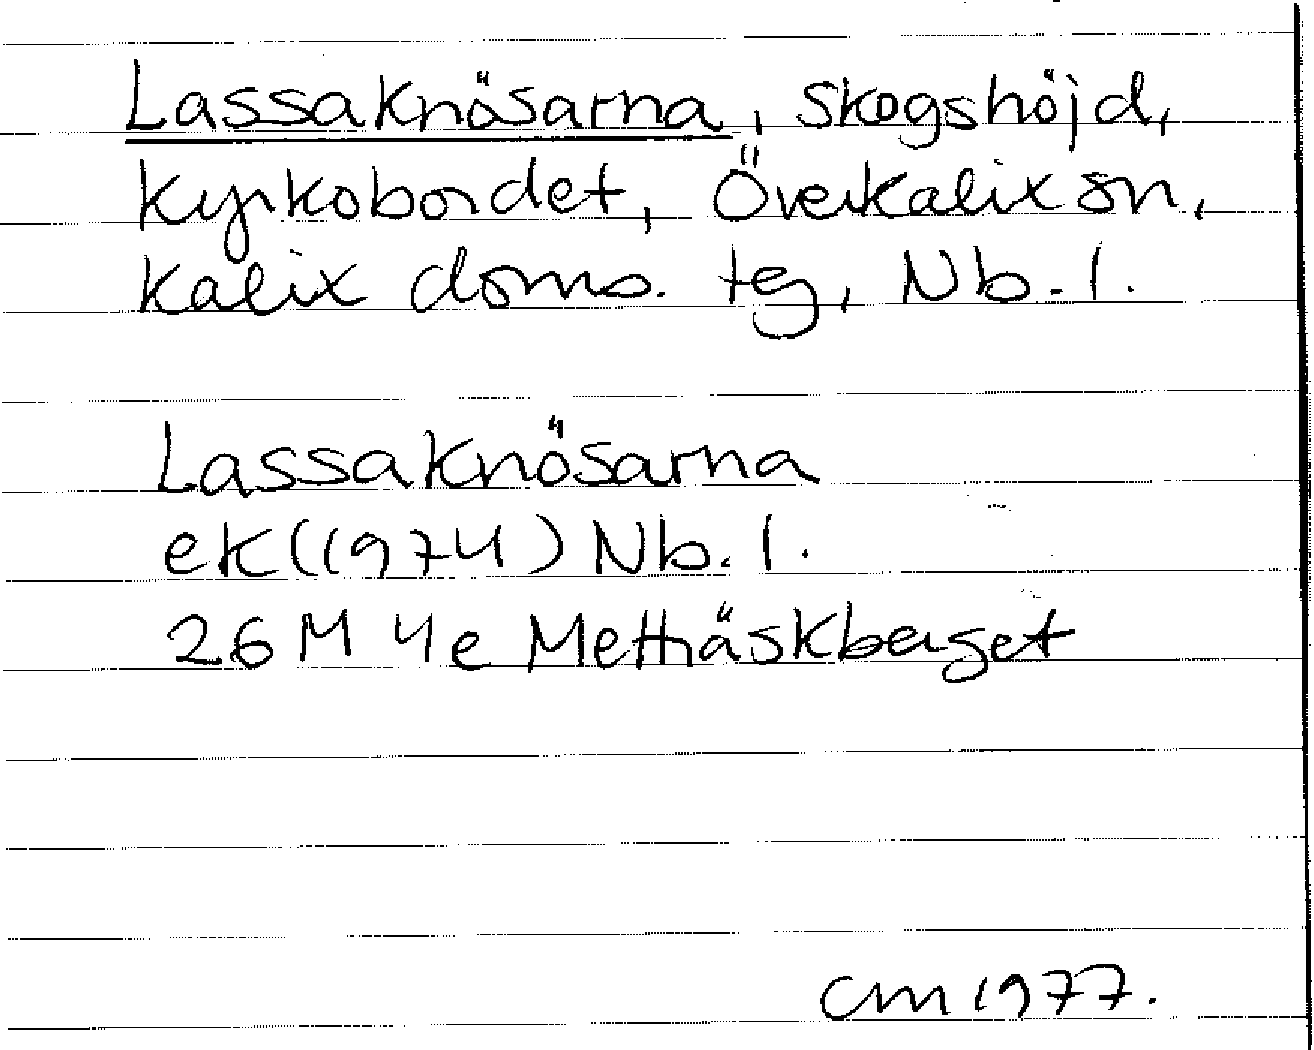 Lassaknösarna, skogshöjd,
kyrkobordet, Överkalix sn,
Kalix doms. tg, Nb. l.
Lassaknösarna
ek (1974) Nb. l.
26 M 4e Metträskberget
cm 1977.